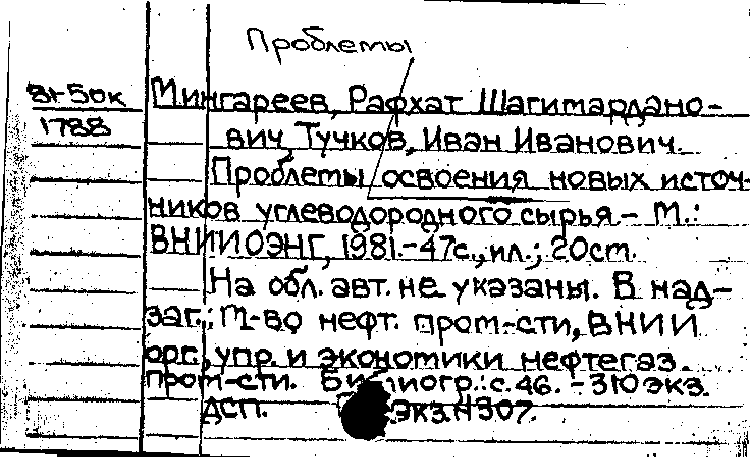 Проблемы
81-50к
1788
Мингареев, Рафхат Шагимардано-
вич, Тучков, Иван Иванович.
Проблемы освоения новых источ-
ников углеводородного сырья. - М.:
ВНИИОЭНГ, 1981. - 47с., ил.; 20см.
На обл. авт. не указаны. В над-
заг.: М-во нефт. пром-сти, ВНИИ
орг., упр. и экономики нефтегаз.
пром-сти. Библиогр.: с. 46. - 310 экз.
ДСП. Экз. N307.